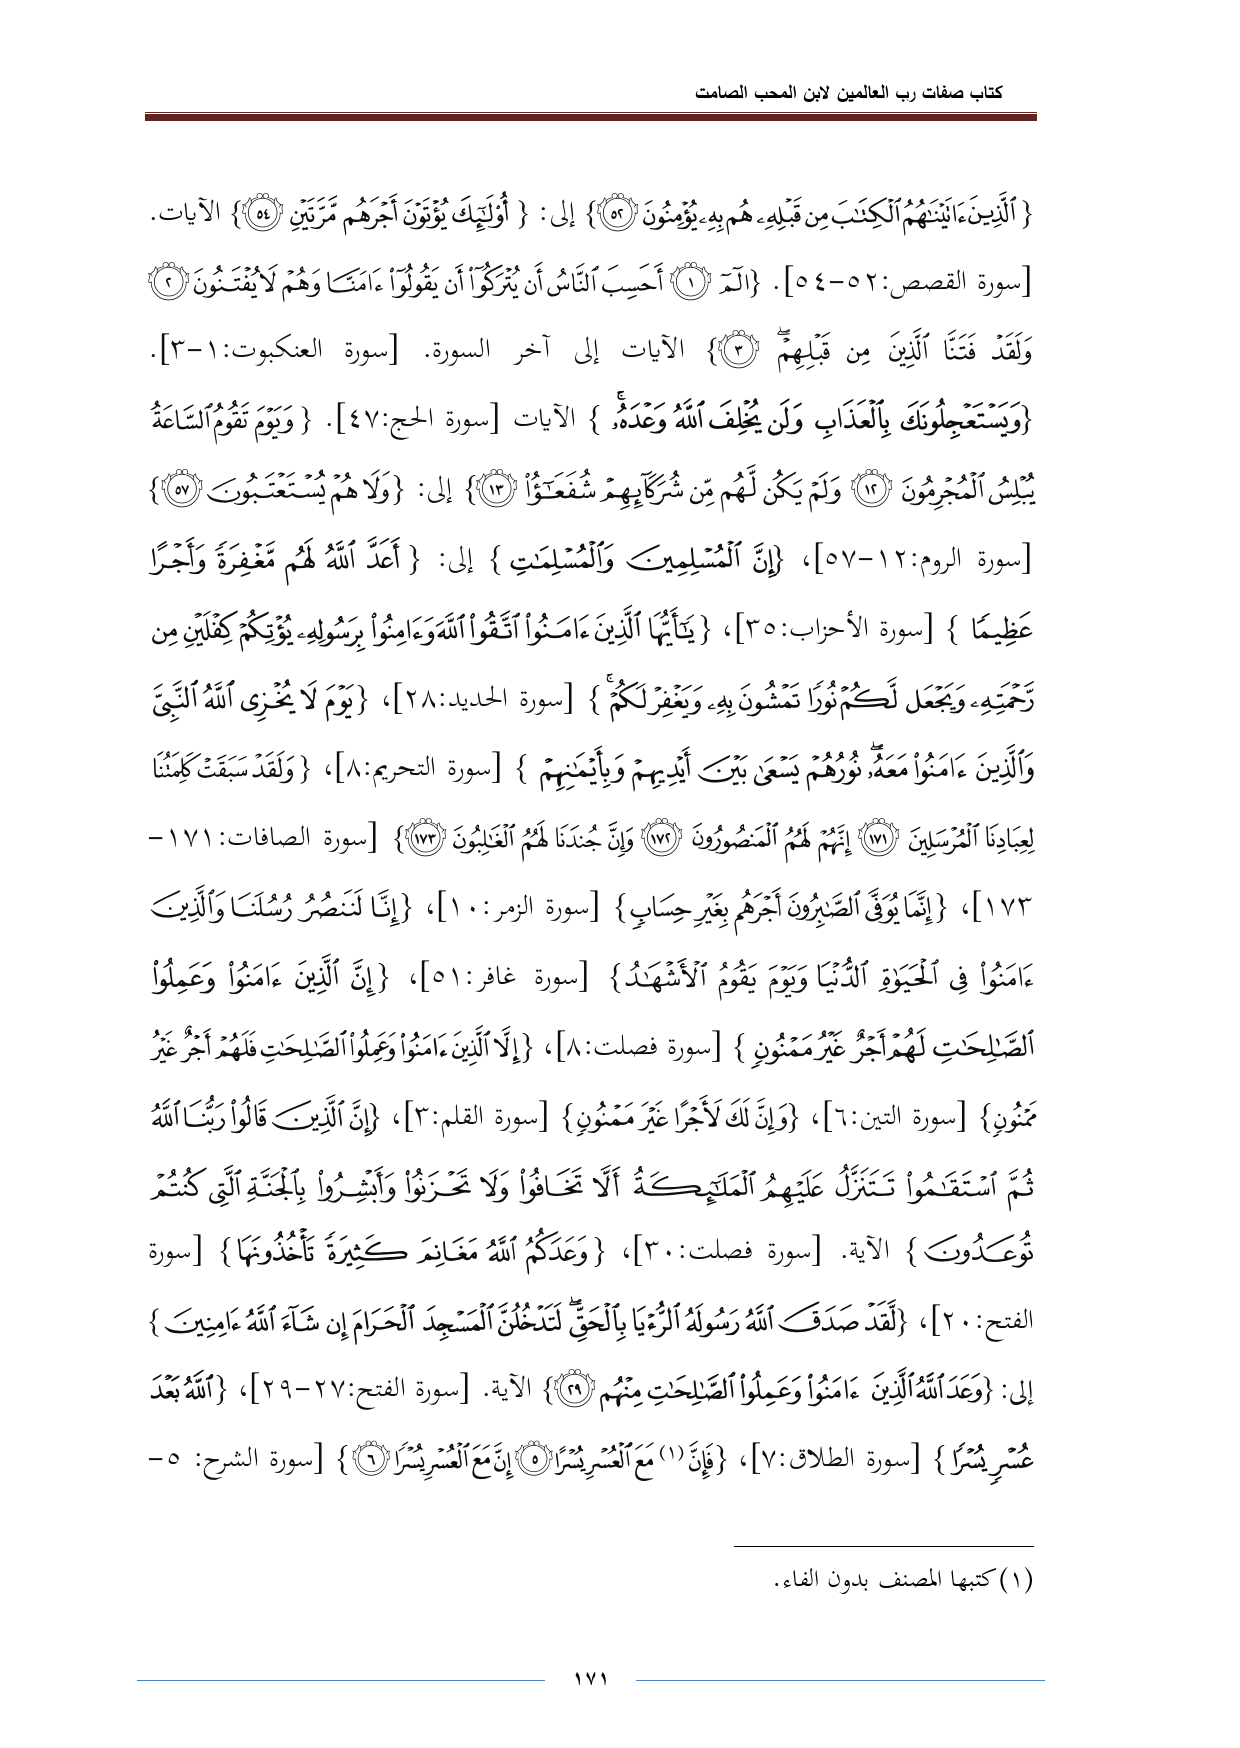 كتاب صفات رب العالمين لابن المحب الصامت
{ ٱلَّذِينَ ءَاتَيْنَٰهُمُ ٱلْكِتَٰبَ مِن قَبْلِهِۦ هُم بِهِۦ يُؤْمِنُونَ ٥٢} إلى: { أُوْلَٰٓئِكَ يُؤْتَوْنَ أَجْرَهُم مَّرَّتَيْنِ ٥٤} الآيات.
[سورة القصص:٥٢-٥٤]. {الٓمٓ ١ أَحَسِبَ ٱلنَّاسُ أَن يُتْرَكُوٓاْ أَن يَقُولُوٓاْ ءَامَنَّا وَهُمْ لَا يُفْتَنُونَ ٢
وَلَقَدْ فَتَنَّا ٱلَّذِينَ مِن قَبْلِهِمْۖ ٣} الآيات إلى آخر السورة. [سورة العنكبوت:١-٣].
{وَيَسْتَعْجِلُونَكَ بِٱلْعَذَابِ وَلَن يُخْلِفَ ٱللَّهُ وَعْدَهُۥۚ } الآيات [سورة الحج:٤٧]. { وَيَوْمَ تَقُومُ ٱلسَّاعَةُ
يُبْلِسُ ٱلْمُجْرِمُونَ ١٢ وَلَمْ يَكُن لَّهُم مِّن شُرَكَآئِهِمْ شُفَعَٰٓؤُاْ ١٣} إلى: {وَلَا هُمْ يُسْتَعْتَبُونَ ٥٧}
[سورة الروم:١٢-٥٧]، {إِنَّ ٱلْمُسْلِمِينَ وَٱلْمُسْلِمَٰتِ } إلى: { أَعَدَّ ٱللَّهُ لَهُم مَّغْفِرَةً وَأَجْرًا
عَظِيمًا } [سورة الأحزاب:٣٥]، {يَٰٓأَيُّهَا ٱلَّذِينَ ءَامَنُواْ ٱتَّقُواْ ٱللَّهَ وَءَامِنُواْ بِرَسُولِهِۦ يُؤْتِكُمْ كِفْلَيْنِ مِن
رَّحْمَتِهِۦ وَيَجْعَل لَّكُمْ نُورًا تَمْشُونَ بِهِۦ وَيَغْفِرْ لَكُمْۚ } [سورة الحديد:٢٨]، {يَوْمَ لَا يُخْزِى ٱللَّهُ ٱلنَّبِىَّ
وَٱلَّذِينَ ءَامَنُواْ مَعَهُۥۖ نُورُهُمْ يَسْعَىٰ بَيْنَ أَيْدِيهِمْ وَبِأَيْمَٰنِهِمْ } [سورة التحريم:٨]، { وَلَقَدْ سَبَقَتْ كَلِمَتُنَا
لِعِبَادِنَا ٱلْمُرْسَلِينَ ١٧١ إِنَّهُمْ لَهُمُ ٱلْمَنصُورُونَ ١٧٢ وَإِنَّ جُندَنَا لَهُمُ ٱلْغَٰلِبُونَ ١٧٣} [سورة الصافات:١٧١-
١٧٣]، {إِنَّمَا يُوَفَّى ٱلصَّٰبِرُونَ أَجْرَهُم بِغَيْرِ حِسَابٍ} [سورة الزمر:١٠]، {إِنَّا لَنَنصُرُ رُسُلَنَا وَٱلَّذِينَ
ءَامَنُواْ فِى ٱلْحَيَوٰةِ ٱلدُّنْيَا وَيَوْمَ يَقُومُ ٱلْأَشْهَٰدُ} [سورة غافر:٥١]، {إِنَّ ٱلَّذِينَ ءَامَنُواْ وَعَمِلُواْ
ٱلصَّٰلِحَٰتِ لَهُمْ أَجْرٌ غَيْرُ مَمْنُونٍ } [سورة فصلت:٨]، {إِلَّا ٱلَّذِينَ ءَامَنُواْ وَعَمِلُواْ ٱلصَّٰلِحَٰتِ فَلَهُمْ أَجْرٌ غَيْرُ
مَمْنُونٍ} [سورة التين:٦]، {وَإِنَّ لَكَ لَأَجْرًا غَيْرَ مَمْنُونٍ} [سورة القلم:٣]، {إِنَّ ٱلَّذِينَ قَالُواْ رَبُّنَا ٱللَّهُ
ثُمَّ ٱسْتَقَٰمُواْ تَتَنَزَّلُ عَلَيْهِمُ ٱلْمَلَٰٓئِكَةُ أَلَّا تَخَافُواْ وَلَا تَحْزَنُواْ وَأَبْشِرُواْ بِٱلْجَنَّةِ ٱلَّتِى كُنتُمْ
تُوعَدُونَ } الآية. [سورة فصلت:٣٠]، { وَعَدَكُمُ ٱللَّهُ مَغَانِمَ كَثِيرَةً تَأْخُذُونَهَا } [سورة
الفتح:٢٠]، {لَّقَدْ صَدَقَ ٱللَّهُ رَسُولَهُ ٱلرُّءْيَا بِٱلْحَقِّۖ لَتَدْخُلُنَّ ٱلْمَسْجِدَ ٱلْحَرَامَ إِن شَآءَ ٱللَّهُ ءَامِنِينَ }
إلى: {وَعَدَ ٱللَّهُ ٱلَّذِينَ ءَامَنُواْ وَعَمِلُواْ ٱلصَّٰلِحَٰتِ مِنْهُم ٢٩} الآية. [سورة الفتح:٢٧-٢٩]، {ٱللَّهُ بَعْدَ
عُسْرٍ يُسْرًا } [سورة الطلاق:٧]، {فَإِنَّ (١) مَعَ ٱلْعُسْرِ يُسْرًا ٥ إِنَّ مَعَ ٱلْعُسْرِ يُسْرًا ٦} [سورة الشرح: ٥-
(١) كتبها المصنف بدون الفاء.
١٧١